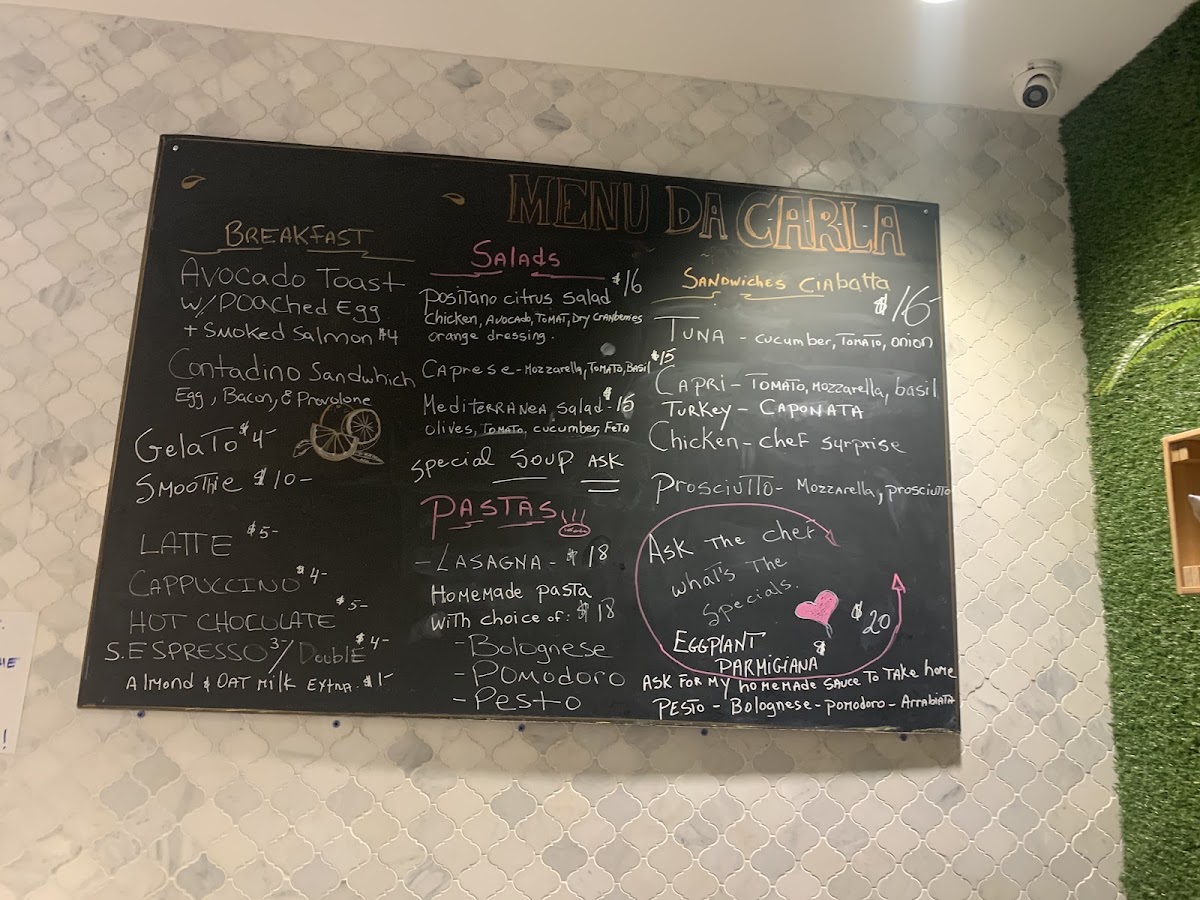 MENU DA CARLA
BREAKFAST
AVOCADO TOAST
W/ POACHED EGG
+ SMOKED SALMON $4
CONTADINO SANDWHICH
EGG, BACON, & PROVOLONE
GELATO $4-
SMOOTHIE $10-
LATTE $5-
CAPPUCCINO $4-
HOT CHOCOLATE $5-
S.ESPRESSO 3-/ DOUBLE $4-
ALMOND & OAT MILK EXTRA. $1-
Salads
POSITANO CITRUS SALAD $16
CHICKEN, AVOCADO, TOMAT, DRY CRANBERRIES
ORANGE DRESSING.
CAPRESE - MOZZARELLA, TOMATO, BASIL $15
MEDITERRANEA SALAD - $15
OLIVES, TOMATO, CUCUMBER, FETA
SPECIAL SOUP ASK
PASTAS
- LASAGNA - $18
HOMEMADE PASTA
WITH CHOICE OF: $18
- Bolognese
- POMODORO
- PESTO
SANDWICHES CIABATTA
$16-
TUNA - CUCUMBER, TOMATO, ONION
CAPRI - TOMATO, MOZZARELLA, BASIL
TURKEY - CAPONATA
CHICKEN - CHEF SURPRISE
PROSCIUTTO - MOZZARELLA, PROSCIUTTO
ASK THE CHEF
WHAT'S THE
SPECIALS.
$20
EGGPLANT $
PARMIGIANA
ASK FOR MY HOMEMADE SAUCE TO TAKE HOME
PESTO - BOLOGNESE - POMODORO - ARRABIATA